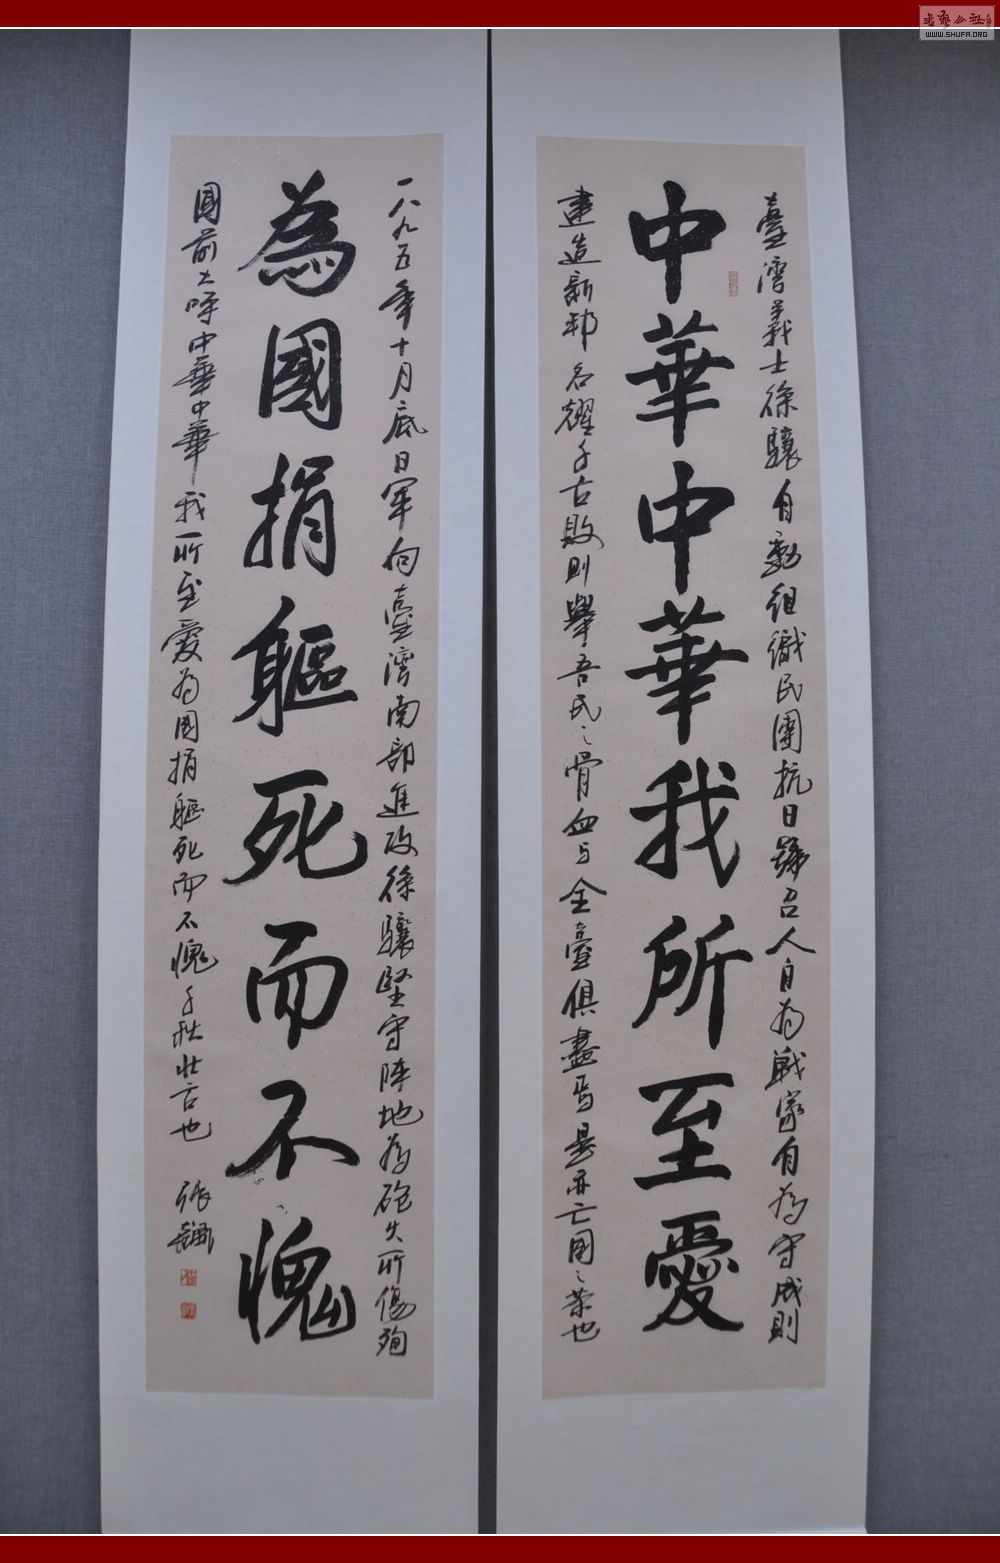 臺灣義士徐驤自動組織民團抗日號召人自為戰家自為守成則
中華中華我所至愛
建造新邦名耀千古敗則舉吾民之骨血与全臺俱盡焉是亦亡國之榮也
一八九五年十月底日軍向臺灣南部進攻徐驤堅守陣地為砲火所傷殉
為國捐軀死而不愧
國前大呼中華中華我所至愛為國捐軀死而不愧千秋壯言也
張
WWW.SHUFA.ORG